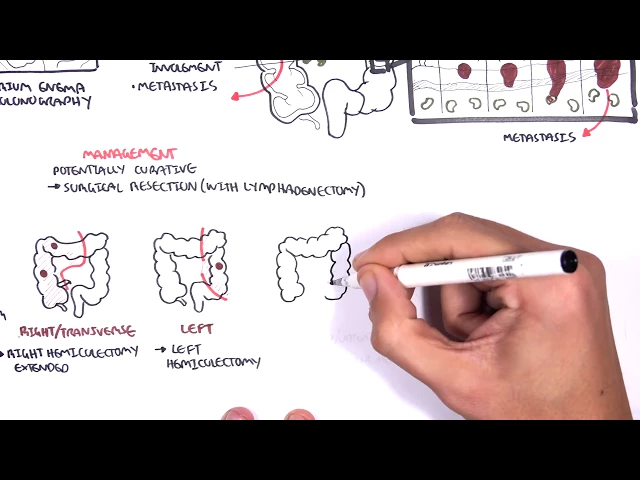 INVOLEMENT
RIUM ENEMA
OLONOGRAPHY
•METASTASIS
METASTASIS
MANAGEMENT
POTENTIALLY CURATIVE
→ SURGICAL RESECTION (WITH LYMPHADENECTOMY)
RIGHT/TRANSVERSE
→ RIGHT HEMICOLECTOMY
EXTENDED
LEFT
→ LEFT
HEMICOLECTOMY